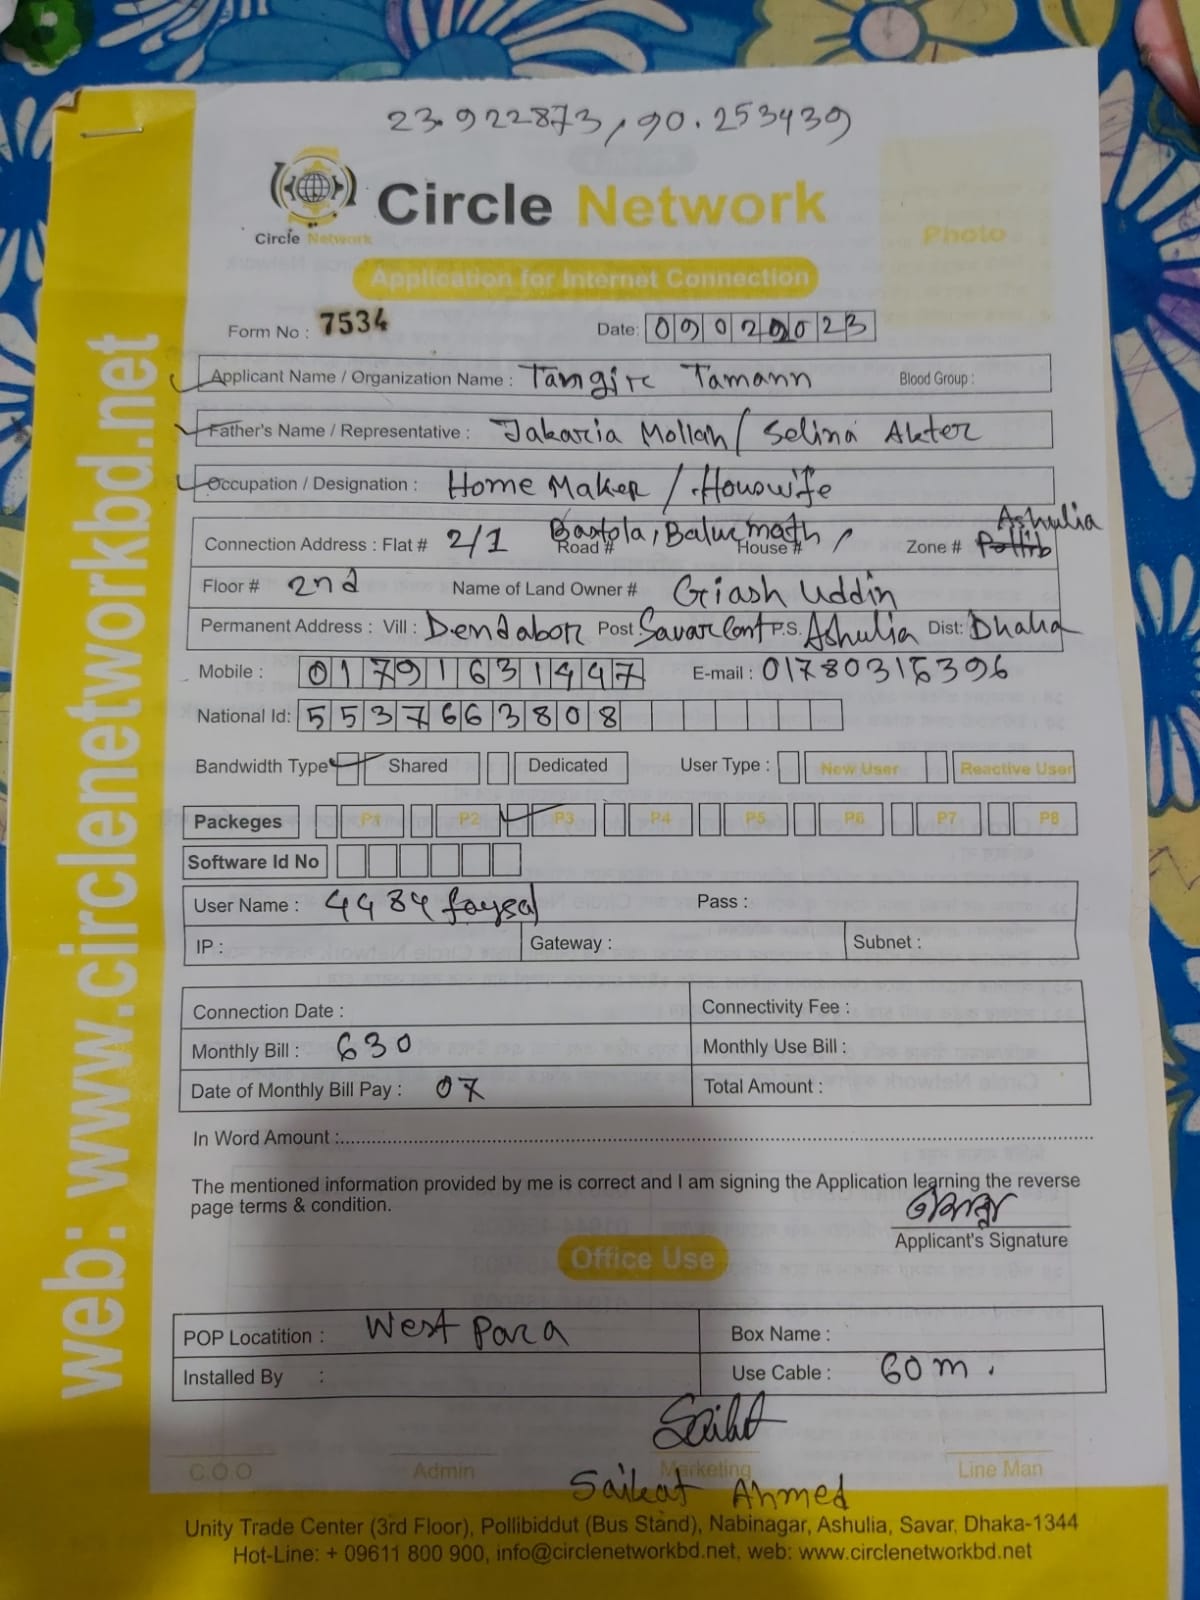 23.922873, 90.253439
Circle Network
Circle Network
Photo
Application for Internet Connection
Form No : 7534
Date: 09022023
Applicant Name / Organization Name : Tangirc Tamann Blood Group :
Father's Name / Representative : Jakaria Mollah / Selina Akter
Occupation / Designation : Home Maker / Houswife
Connection Address : Flat # 2/1 Road # Bastola, Balur math House # / Zone # Ashulia
Floor # 2nd Name of Land Owner # Giash Uddin
Permanent Address : Vill : Dendabor Post : Savar Cant P.S. Ashulia Dist: Dhaka
Mobile : 01791631447 E-mail : 01780315396
National Id: 5537663808
Bandwidth Type Shared Dedicated User Type : New User Reactive User
Packeges P1 P2 P3 P4 P5 P6 P7 P8
Software Id No
User Name : 4484 faysal Pass :
IP : Gateway : Subnet :
Connection Date : Connectivity Fee :
Monthly Bill : 630 Monthly Use Bill :
Date of Monthly Bill Pay : 07 Total Amount :
In Word Amount :
The mentioned information provided by me is correct and I am signing the Application learning the reverse
page terms & condition.
Applicant's Signature
Office Use
POP Locatition : West Para Box Name :
Installed By : Use Cable : 60 m.
Saikat
C.O.O Admin Marketing Line Man
Saikat Ahmed
Unity Trade Center (3rd Floor), Pollibiddut (Bus Stand), Nabinagar, Ashulia, Savar, Dhaka-1344
Hot-Line: + 09611 800 900, info@circlenetworkbd.net, web: www.circlenetworkbd.net
web: www.circlenetworkbd.net